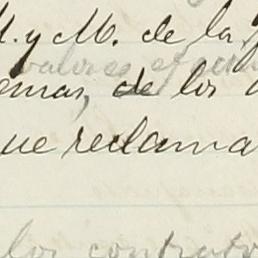 M. y M. de la
valores
emas, de los
que reclama
los contrato